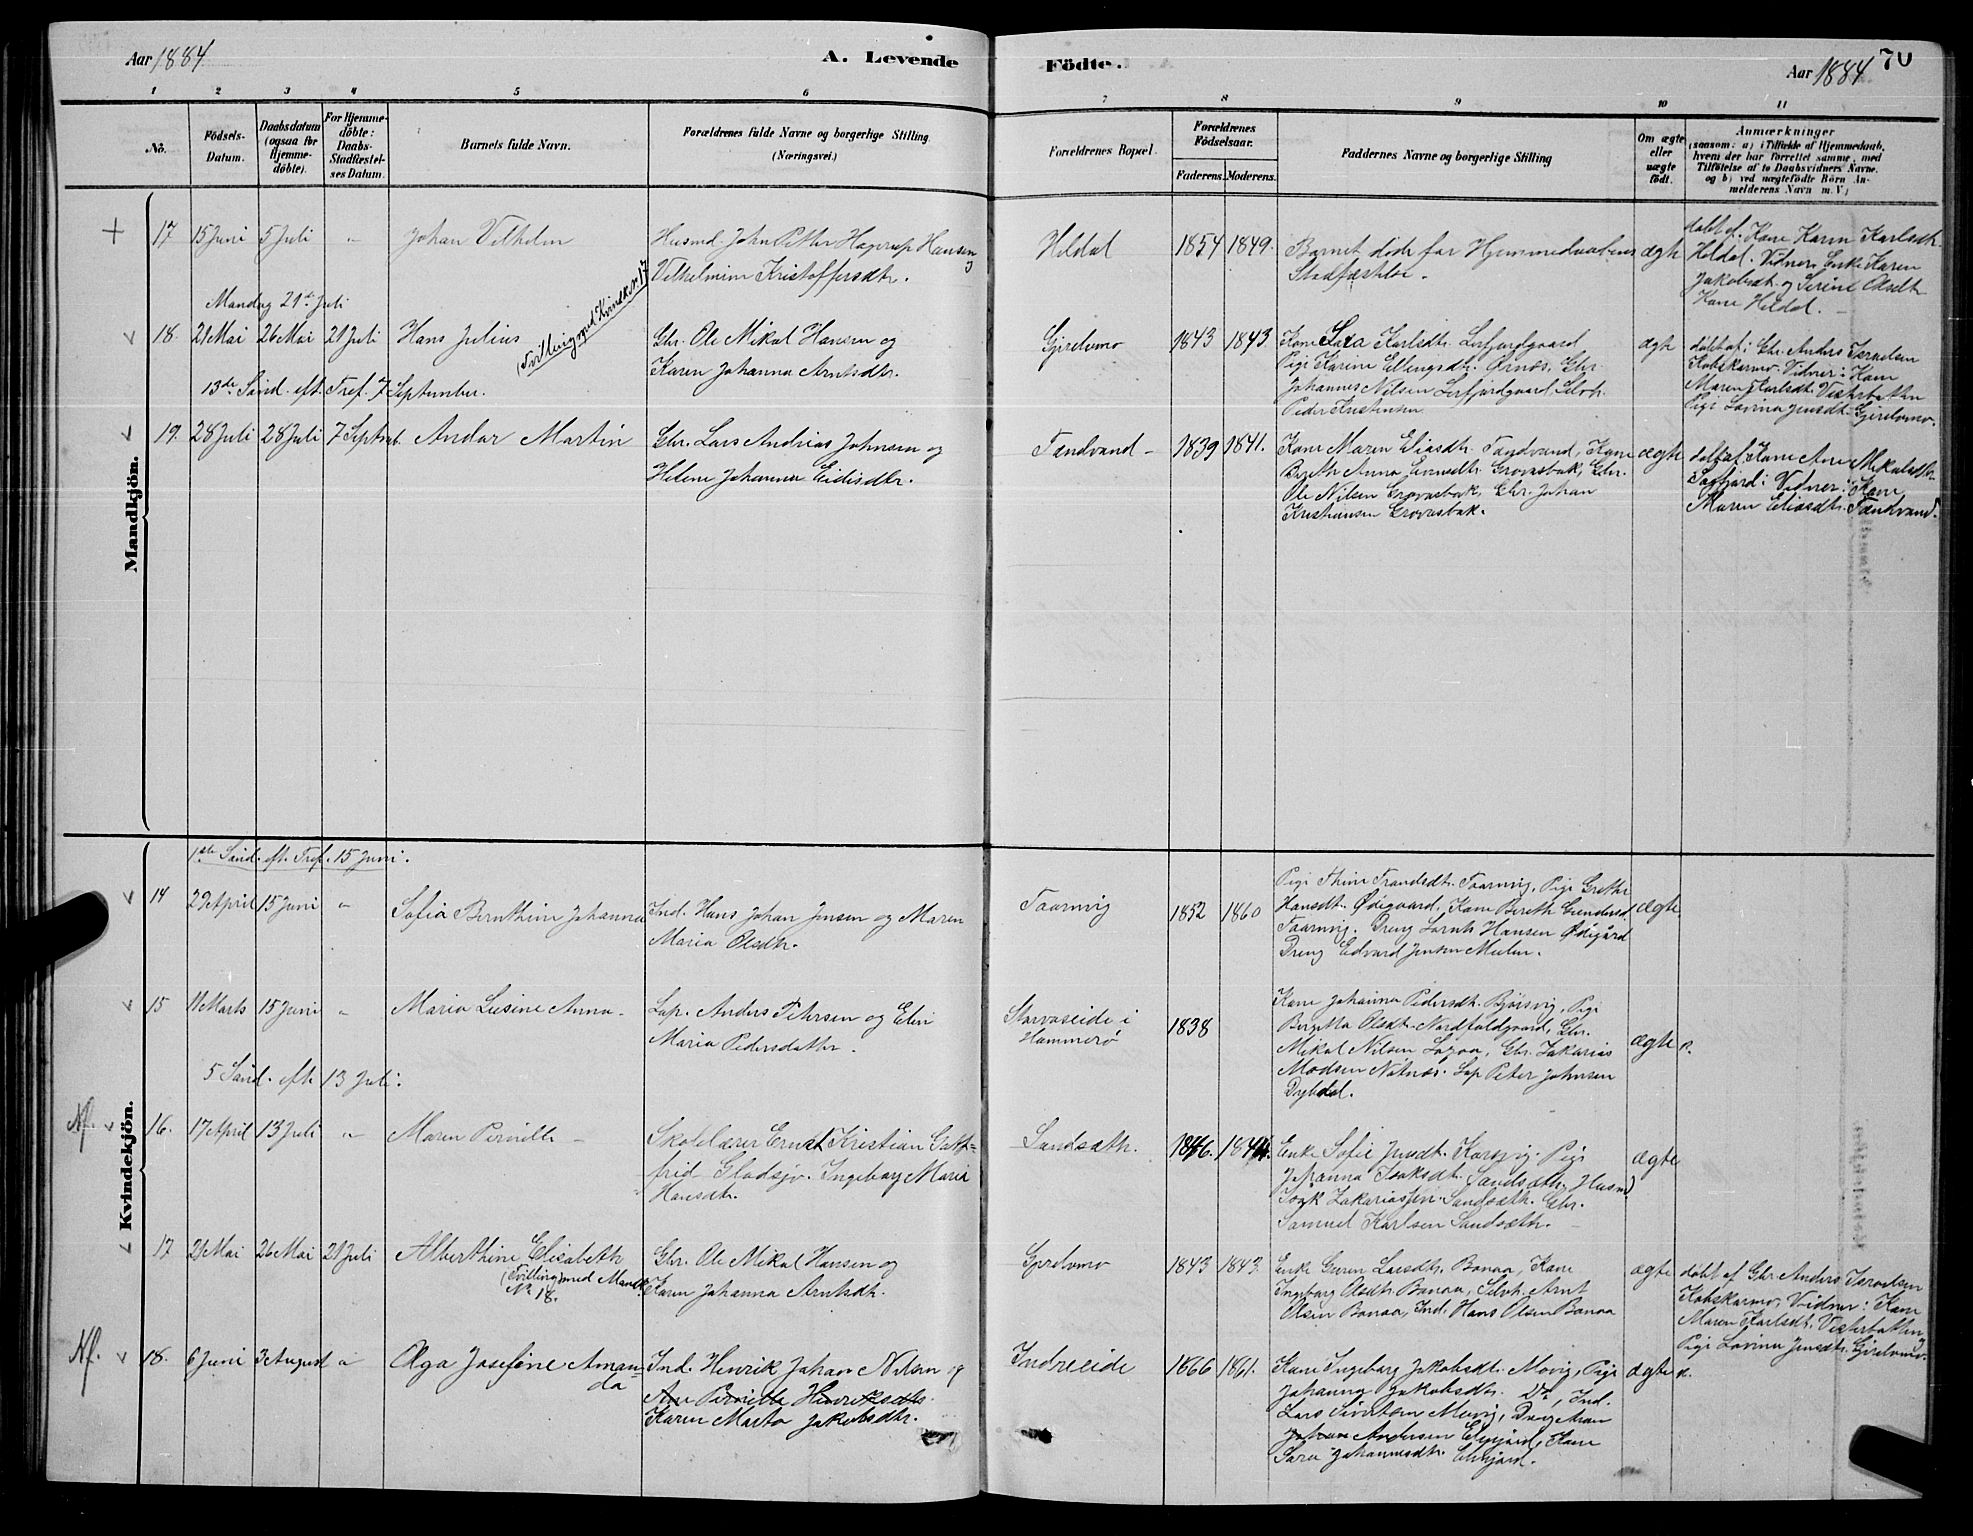 Aar 1884
A. Levende Födte.
Aar 1884
70
1 2 3 4 5 6 7 8 9 10 11
No.
Födsels-Datum.
Daabsdatum (ogsaa for Hjemme-döbte).
For Hjemme-döbte: Daabs-Stadfæstel-ses Datum.
Barnets fulde Navn.
Forældrenes fulde Navne og borgerlige Stilling (Næringsvei.)
Forældrenes Bopæl.
Forældrenes Födselsaar.
Faderens. Moderens.
Faddernes Navne og borgerlige Stilling
Om ægte eller uægte födt.
Anmærkninger
(saasom: a) i Tilfælde af Hjemmedaab,
hvem der har forrettet samme, med
Tilföielse af to Daabsvidners Navne.
og b) ved uægtefödte Börn An-
melderens Navn m. V.)
Mandkjön.
17 15 Juni 5 Juli " Johan Vilhelm
Husmd. John Petter Hagerup Hansen
Vilhelmine Kristoffersdtr.
Heldal 1854 1849.
Barnet døde før Hjemmedaabens
Stadfæstelse.
ægte
døbt af: Kone Karen Karlsdtr.
Heldal. Vidner, Enke Karen
Jakobsdt. og Serine Olsdtr.
Kone Heldal.
Mandag 21de Juli
18. 21 Mai 26 Mai 21 Juli Hans Julius
(Tvilling med Kvindek. Nr. 17
Gbr. Ole Mikal Hansen og
Karen Johanna Arntsdtr.
Gjerelvmo 1843 1843
Kone Sara Karlsdtr. Leifjordgaard
Pige Karine Ellingsdtr. Ørnes, Gbr.
Johannes Nilsen Leifjordgaard, Selvb.
Peder Kristensen
ægte
døbt af: Gbr. Anders Israelsen
Kobskarmo. Vidner: Kone
Maren Karlsdt. Vesterbotten
Pige Lovina Jensdt. Gjerelvmo.
13de Sønd. eft. Tref. 7 September.
19. 28 Juli 28 Juli 7 Septbr. Andor Martin
Gbr. Lars Andreas Johnsen og
Helene Johanna Eidisdtr.
Tandvand 1839 1841.
Kone Maren Eliasdtr. Tandvand, Kone
Bereth Anna Evensdtr. Grovasbak, Gbr.
Ole Nilsen Grovasbak, Gbr. Johan
Kristiansen Grovasbak.
ægte
døbt af Kone Ane Mikalsdtr.
Sagfjord: Vidner: Kone
Maren Eliasdtr. Tandvand.
Kvindekjön.
1ste Sønd. eft. Tref. 15 Juni.
14 29 April 15 Juni " Sofia Bernthine Johanna
Ind. Hans Johan Jensen og Maren
Maria Olsdtr.
Taarnvig 1852 1860
Pige Thine Trandsdt. Taarnvig, Pige Grethe
Hansdt. Ødegaard, Kone Bereth Gundersd.
Taarnvig. Dreng Lornts Hansen Ødegård
Dreng Edvard Jensen Mulen.
ægte.
15 11 Marts 15 Juni " Maria Lusine Anna
Lap. Anders Pehrsen og Elen
Maria Pedersdatter.
Storvaseide i
Hammerø
1838
Kone Johanna Pedersdt. Bjørsvig, Pige
Bergitta Olsdt. Nordfoldgaard, Gbr.
Mikal Nilsen Lagaa, Gbr. Zakarias
Madsen Nætnæs. Lap Peter Johnsen
Dybdal.
ægte
5 Sønd. eft. 13 Juli.
Af. 16. 17 April 13 Juli " Maren Pernille
Skolelærer Ernst Kristian Gott-
frid Gladsjø. Ingeborg Maria
Hansdtr.
Sandsæth. 1846. 1844.
Enke Sofie Jensdt. Korsvig. Pige
Johanna Isaksdt. Sandsæth. Husmd.
Isak Zakariassen. Sandsæth. Gbr.
Samuel Karlsen Sandsæth.
ægte
17 21 Mai 26 Mai 21 Juli Alberthine Elisabeth
(Tvilling med Mandk.
No 18.
Gbr. Ole Mikal Hansen og
Karen Johanna Arntsdtr.
Gjerelvmo 1843 1843
Enke Guren Larsdtr. Bonaa, Kone
Ingeborg Olsdtr. Bonaa, Selvb. Arnt
Olsen Bonaa, Ind. Hans Olsen Bonaa
ægte
døbt af Gbr. Anders Israelsen
Kobskarmo, Vidner: Kone
Maren Karlsdt. Vesterbotten
Pige Lovina Jensdt. Gjerelvmo.
Af. 18. 6 Juni 3 August " Olga Josefine Aman-
da
Ind. Henrik Johan Nilsen og
Ane Pernille Henriksdtr.
Karen Marta Jakobsdtr.
Indreeide 1866 1861.
Kone Ingeborg Jakobsdt. Movig, Pige
Johanna Jakobsdtr. Do, Ind.
Lars Sivertsen Movig, Dreng Aron
Johan Andersen Elvejord, Kone
Sara Johannesdtr. Elvejord.
ægte